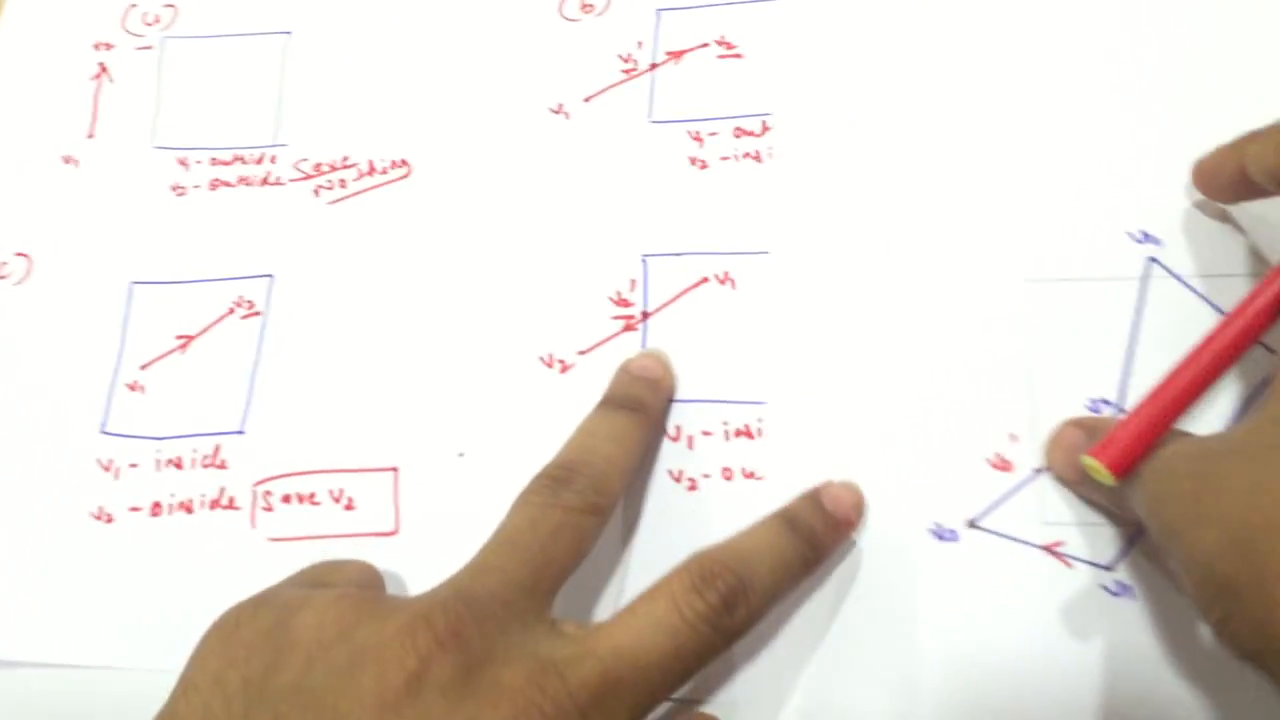 (a)
V2
V1
V1-outside
V2-outside Save Nothing
(b)
V1'
V2
V1
V1-out
V2-insi
c)
V2
V1
V1-inside
V2-oinside Save V2
V2'
V1
V2
V1-insi
V2-ou